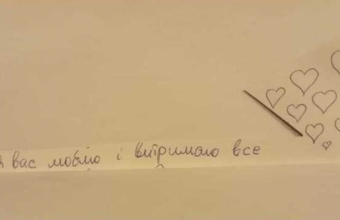 вас люблю і витримаю все